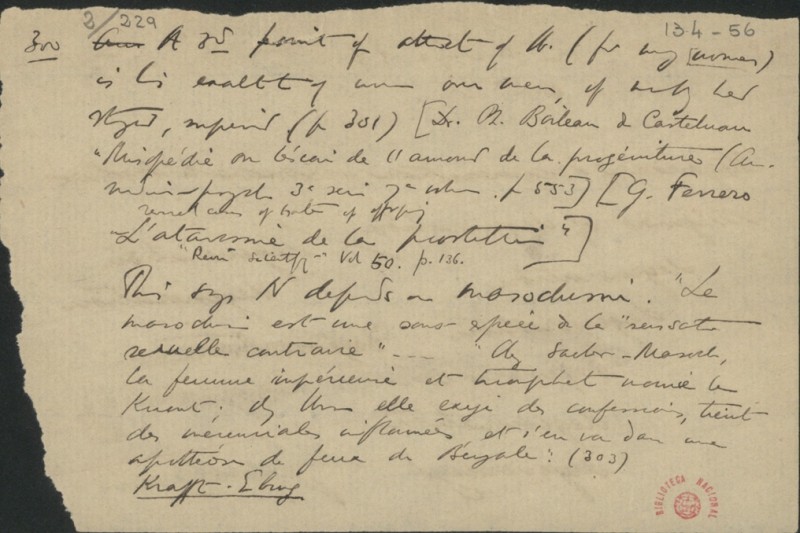 2/229
134-56
300 A 3rd point of attack of N. (for my women)
is his exaltt of women over men, of
superior (p 301) [Dr. M. Boileau de Castelnau
"Misopédie ou lésion de l'amour de la progéniture (An.
médico-psych 3e série 7e volume. p 553)] [G. Ferrero
recent cases of hate of offspring
"L'atavisme de la prostitution"]
"Revue Scientifique" Vol 50. p. 136.
This says N depends on masochism. "Le
masochisme est une sous-espèce de la "sensation
sexuelle contraire" --- "Chez Sacher-Masoch,
la femme impérieuse et triomphet manie le
Knout; chez elle exige des confessions, tient
des mercuriales enflammées et s'en va dans une
apothéose de feux de Bengale". (303)
Krafft-Ebing
BIBLIOTECA NACIONAL